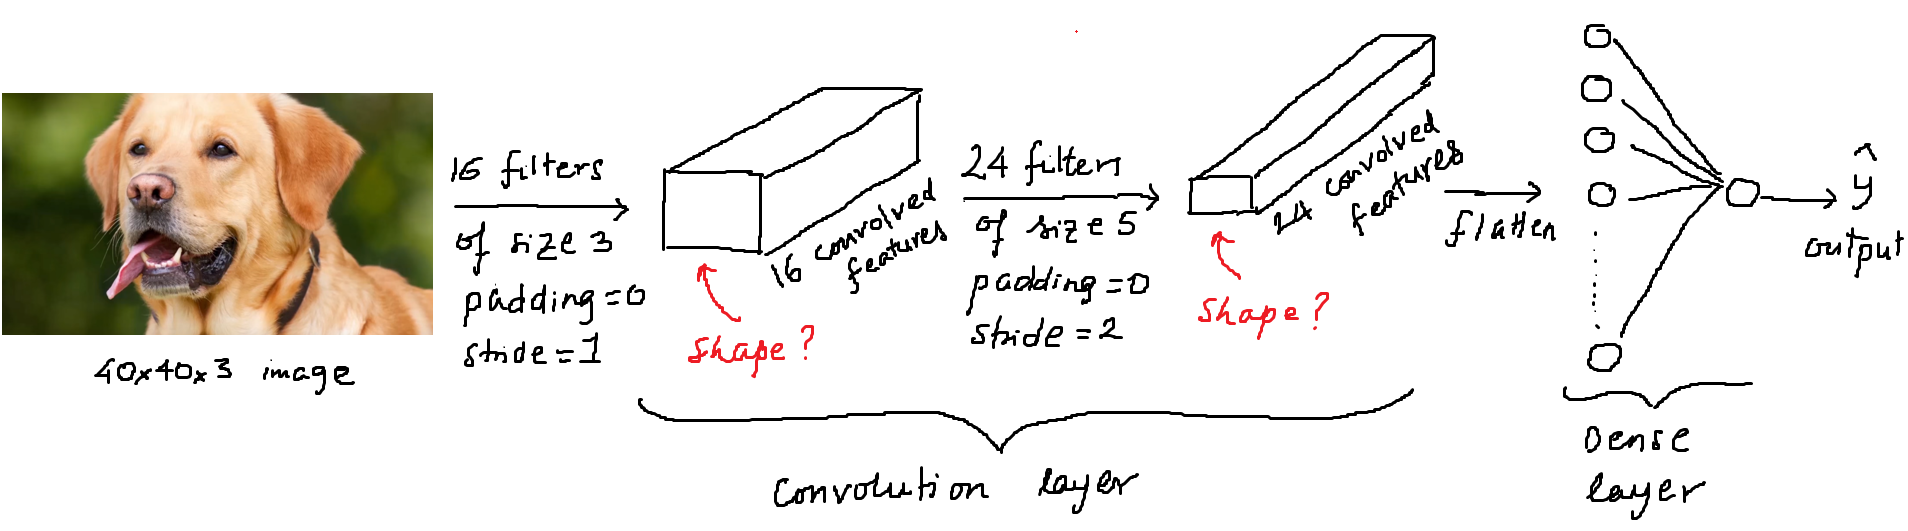 40x40x3 image
16 filters
of size 3
padding=0
stride=1
16 convolved
features
shape?
24 filters
of size 5
padding=0
stride=2
24 convolved
features
shape?
flatten
ŷ
output
convolution layer
Dense
layer